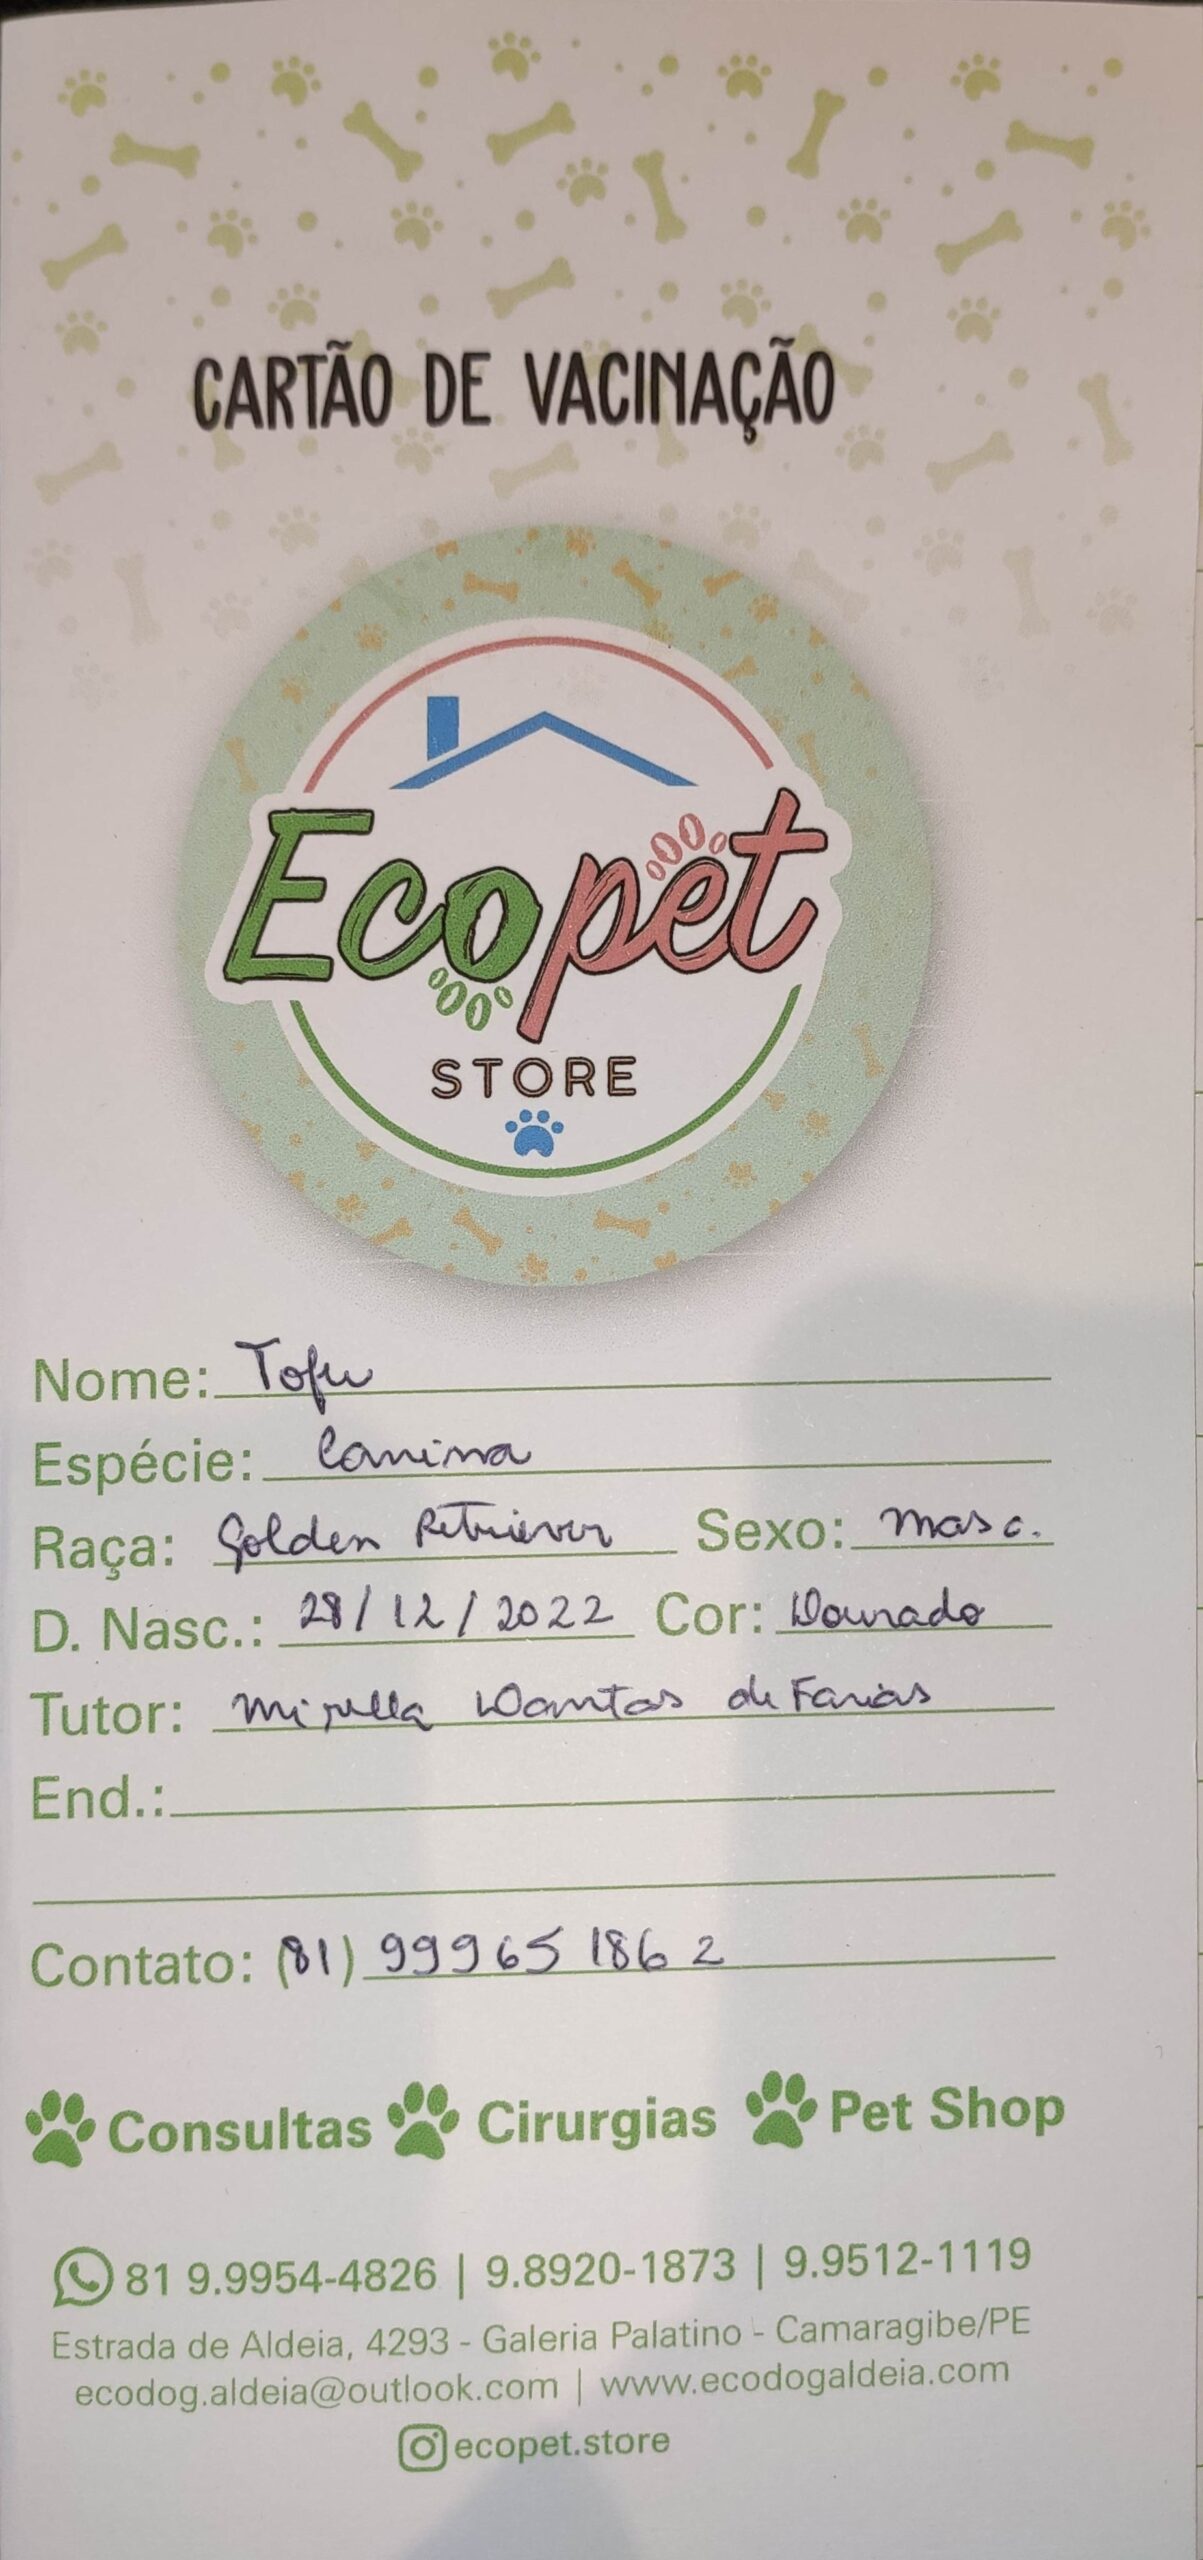 CARTÃO DE VACINAÇÃO
Ecopet
STORE
Nome: Tofu
Espécie: Canina
Raça: Golden Retriever Sexo: Masc.
D. Nasc.: 28/12/2022 Cor: Dourado
Tutor: Mirella Dantas de Farias
End.:
Contato: (81) 99965 1862
Consultas Cirurgias Pet Shop
81 9.9954-4826 | 9.8920-1873 | 9.9512-1119
Estrada de Aldeia, 4293 - Galeria Palatino - Camaragibe/PE
ecodog.aldeia@outlook.com | www.ecodogaldeia.com
ecopet.store